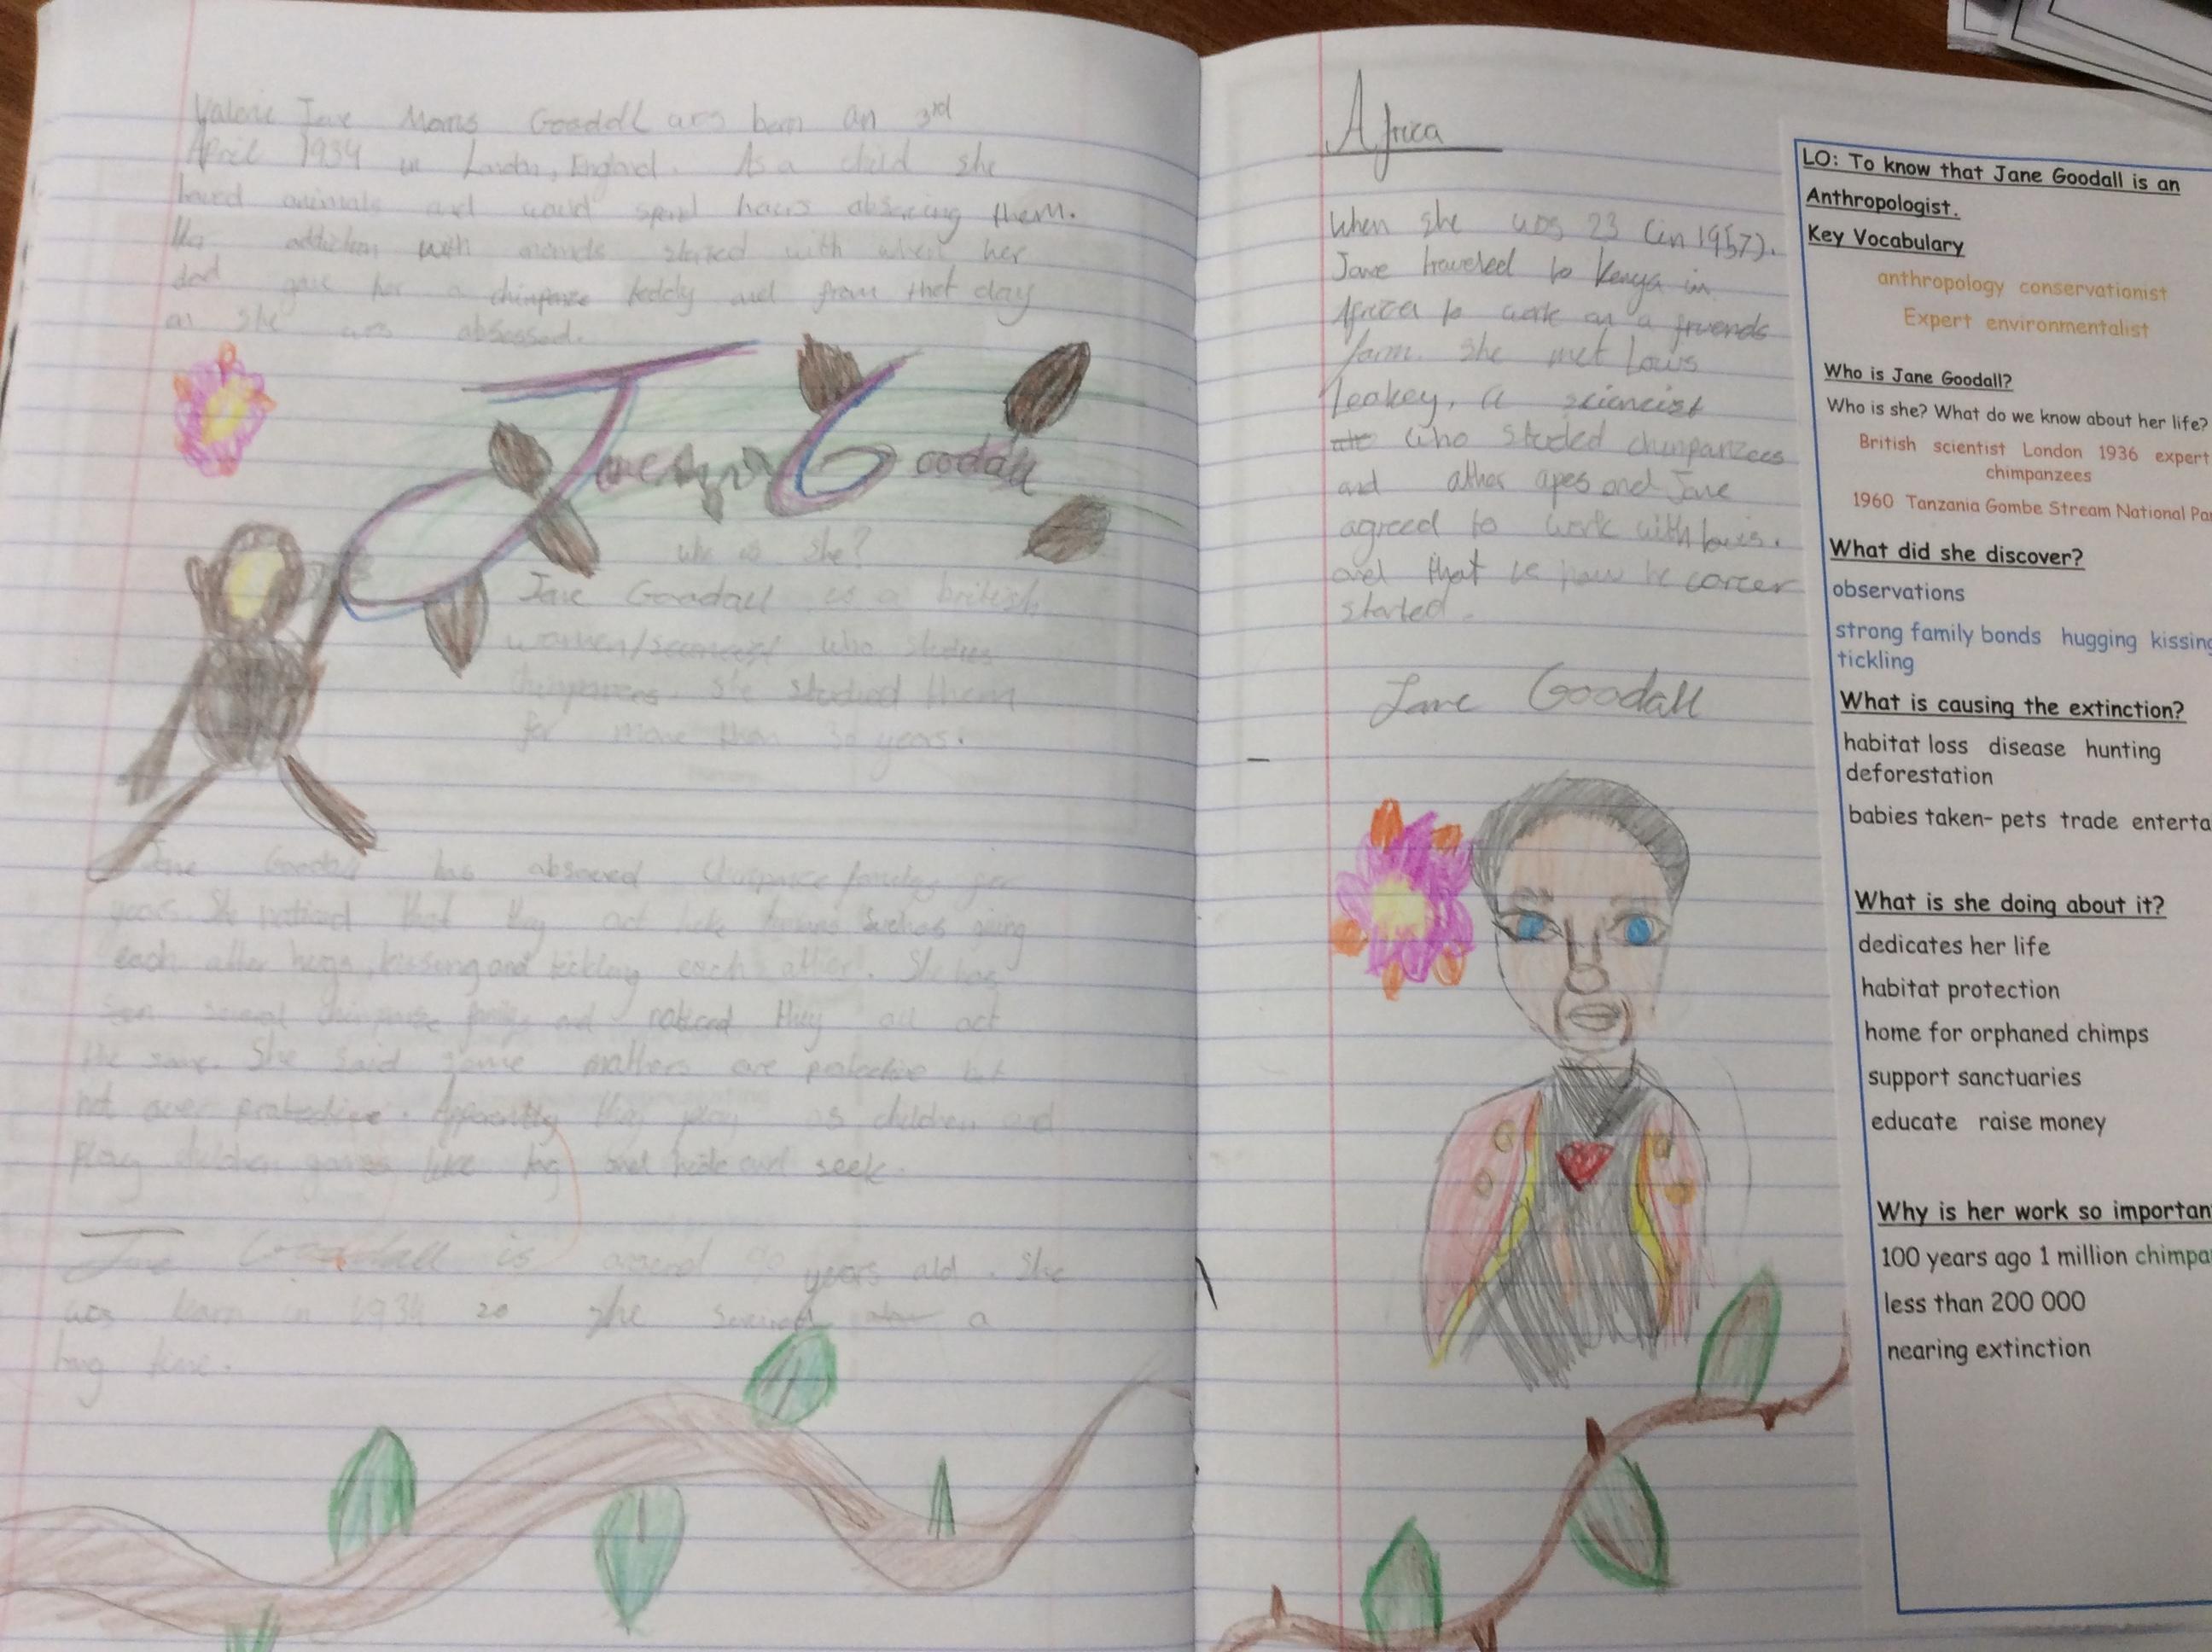 Valerie Jane Morris Goodall was born on 3rd
April 1934 in London, England. As a child she
loved animals and would spend hours absering them.
Her addiction with started with when her
dad gave her a chimpanze teddy and from that day
on she was absessed.
Jane Goodall
who is she?
Jane Goodall is a british
women/sceincist who studies
chimpanzees. She studied them
for more than 30 years.
Jane Goodall has absorved Chimpanze for
years. She noticed that they act like humans giving
each other hugs, kissing and tickling each other. She has
seen several chimpanze and noticed they all act
the same. She said some mothers are protective but
not over protective. Apparently they play as children and
play children games like tag and hide and seek.
Jane Goodall is around years old. She
was born in 1934 so she a
long time.
Africa
When she was 23 (in 1957).
Jane traveled to Kenya in
Africa to work on a friends
farm. She met Lowis
Leakey, a sciencist
who studed chimpanzees
and other apes and Jane
agreed to work with Lowis.
and that is how he career
started.
Jane Goodall
LO: To know that Jane Goodall is an
Anthropologist.
Key Vocabulary
anthropology conservationist
Expert environmentalist
Who is Jane Goodall?
Who is she? What do we know about her life?
British scientist London 1936 expert
chimpanzees
1960 Tanzania Gombe Stream National Par
What did she discover?
observations
strong family bonds hugging kissing
tickling
What is causing the extinction?
habitat loss disease hunting
deforestation
babies taken- pets trade enterta
What is she doing about it?
dedicates her life
habitat protection
home for orphaned chimps
support sanctuaries
educate raise money
Why is her work so importan
100 years ago 1 million chimpa
less than 200 000
nearing extinction